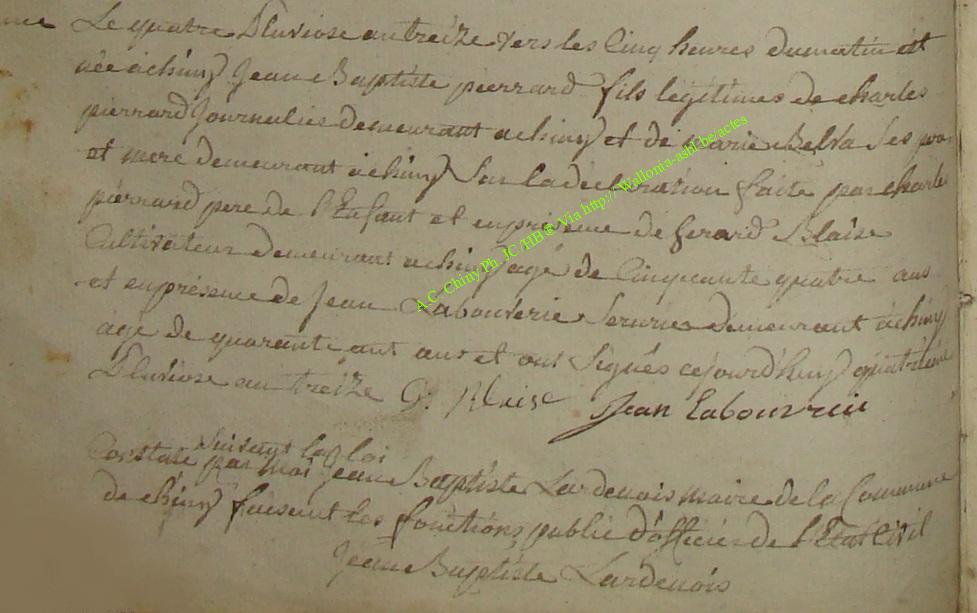 Le quatre Pluviose an treize vers les Cinq heures du matin est
née a chiny Jean Baptiste pierrard fils légitimes de charles
pierrard Journalies demeurant a chiny et de marie Belva Ses
et mere demeurant a chiny Sur la déclaration faite par charle
pierrard pere de l'Enfant et en présence de Gerard Blaise
Cultivateur demeurant a chiny agé de Cinquante quatre ans
et en présence de Jean Labouverie Serurier demeurant a chiny
age de quarante ans et ont Signés cejourd'huy quatrième
Pluviose an treize G. Blaise Jean Labouvrie
Suivant la loi
Constaté par moi Jean Baptiste Lardenois maire de la Commune
de chiny faisant les fonctions public d'officier de l'Etat Civil
Jean Baptiste Lardenois
A.C. Chiny Ph. JC /HB ® Via http://Wallonia-asbl.be/actes